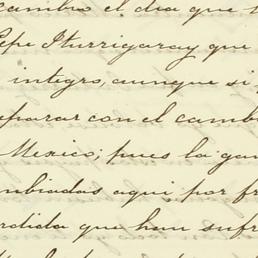 cambio el dia que
Pepe Yturrigaray que
integro, aunque si
eparar con el camb
Mexico; pues la gan
mbiadas aqui por fr
rdida que han sufr